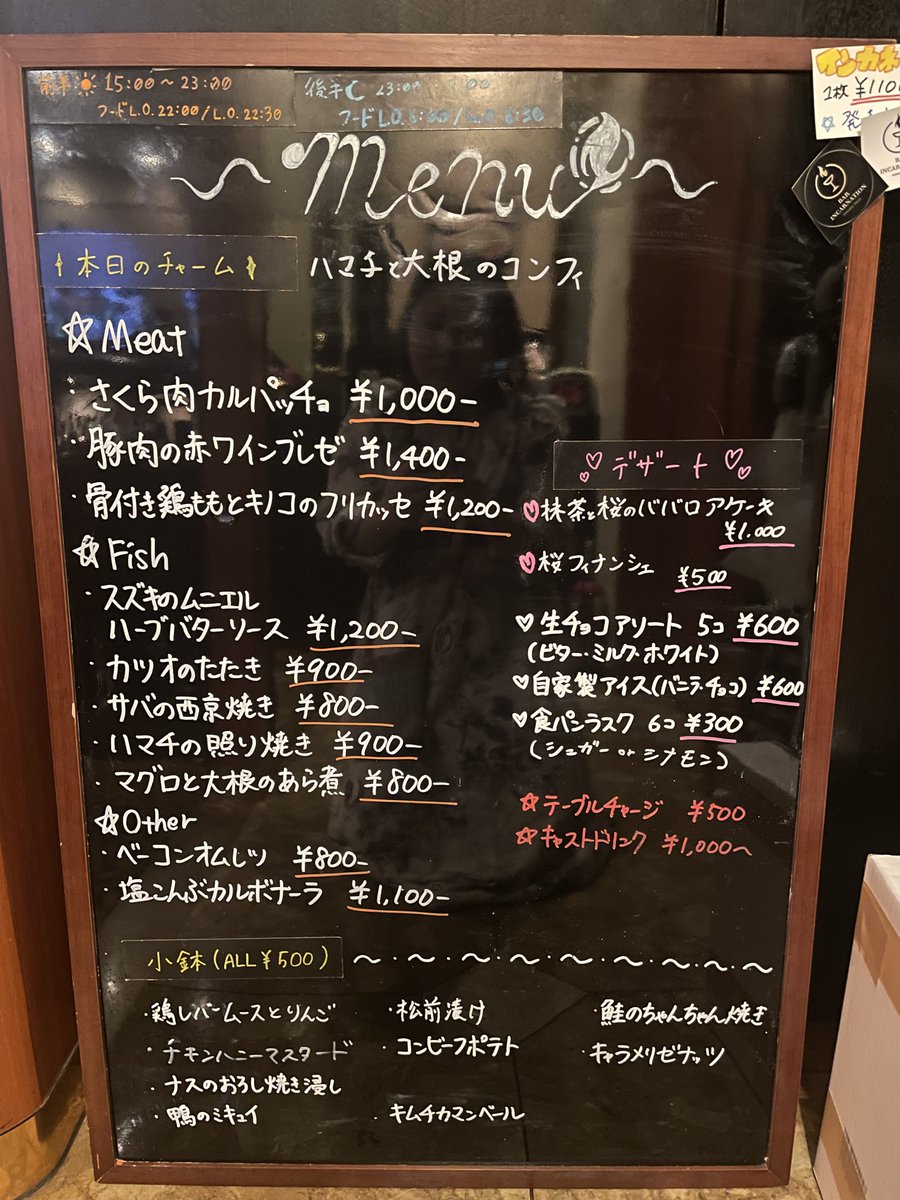 前半 15:00～23:00
フードL.O.22:00/L.O.22:30
後半 23:00
フードL.O. /L.O.
ワンカネ
1枚 ¥1100
BAR INCARNATION
BAR INCARNATION
Menu
本日のチャーム ハマチと大根のコンフィ
☆Meat
・さくら肉カルパッチョ ¥1,000-
・豚肉の赤ワインブレゼ ¥1,400-
・骨付き鶏ももとキノコのフリカッセ ¥1,200-
☆Fish
・スズキのムニエル
ハーブバターソース ¥1,200-
・カツオのたたき ¥900-
・サバの西京焼き ¥800-
・ハマチの照り焼き ¥900-
・マグロと大根のあら煮 ¥800-
☆Other
・ベーコンオムレツ ¥800-
・塩こんぶカルボナーラ ¥1,100-
♡デザート♡
♡抹茶と桜のババロアケーキ
¥1.000
♡桜フィナンシェ ¥500
♡生チョコアソート 5コ ¥600
(ビター・ミルク・ホワイト)
♡自家製アイス(バニラ・チョコ) ¥600
♡食パンラスク 6コ ¥300
(シュガー or シナモン)
☆テーブルチャージ ¥500
☆キャストドリンク ¥1,000～
小鉢(ALL¥500)
・鶏レバームースとりんご
・チキンハニーマスタード
・ナスのおろし焼き浸し
・鴨のミキュイ
・松前漬け
・コンビーフポテト
・キムチカマンベール
・鮭のちゃんちゃん焼き
・キャラメリゼナッツ